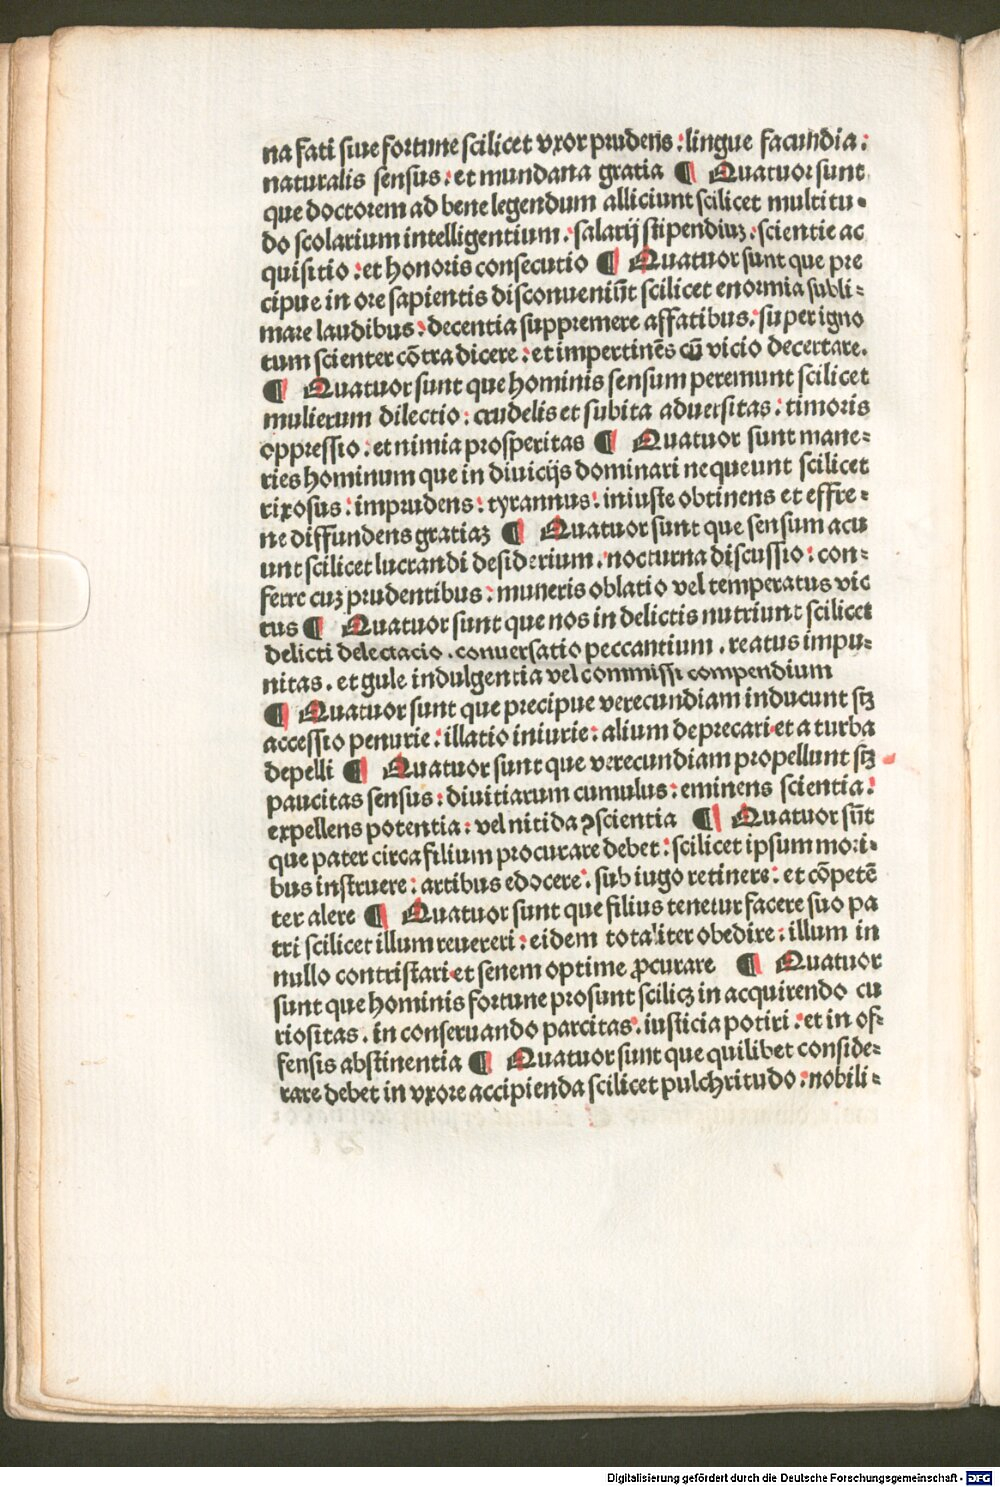 na fati siue fortune scilicet vxor prudens : lingue facundia :
naturalis sensus : et mundana gratia ¶ Quatuor sunt
que doctorem ad bene legendum alliciunt scilicet multitu-
do scolarium intelligentium : salarij stipendiuꝫ : scientie ac
quisitio : et honoris consecutio ¶ Quatuor sunt que pre
cipue in ore sapientis disconueniūt scilicet enormia subli-
mare laudibus : decentia suppremere affatibus : super igno
tum scienter cōtra dicere : et impertinēs cū vicio decertare.
¶ Quatuor sunt que hominis sensum peremunt scilicet
mulierum dilectio : crudelis et subita aduersitas : timoris
oppressio : et nimia prosperitas ¶ Quatuor sunt mane-
ries hominum que in diuicijs dominari nequeunt scilicet
rixosus : imprudens : tyrannus : iniuste obtinens et effre-
ne diffundens gratiaꝫ ¶ Quatuor sunt que sensum acu
unt scilicet lucrandi desiderium : nocturna discussio : con-
ferre cuꝫ prudentibus : muneris oblatio vel temperatus vic
tus ¶ Quatuor sunt que nos in delictis nutriunt scilicet
delicti delectacio . conuersatio peccantium . reatus impu-
nitas . et gule indulgentia vel commissi compendium
¶ Quatuor sunt que precipue verecundiam inducunt scꝫ
accessio penurie : illatio iniurie : alium deprecari et a turba
depelli ¶ Quatuor sunt que verecundiam propellunt scꝫ
paucitas sensus : diuitiarum cumulus : eminens scientia :
expellens potentia : vel nitida ꝯscientia ¶ Quatuor sūt
que pater circa filium procurare debet : scilicet ipsum mori-
bus instruere : artibus edocere : sub iugo retinere : et cōpetē
ter alere ¶ Quatuor sunt que filius tenetur facere suo pa
tri scilicet illum reuereri : eidem totaliter obedire : illum in
nullo contristari et senem optime ꝓcurare ¶ Quatuor
sunt que hominis fortune prosunt scilicꝫ in acquirendo cu
riositas . in conseruando parcitas : iusticia potiri : et in of-
fensis abstinentia ¶ Quatuor sunt que quilibet conside-
rare debet in vxore accipienda scilicet pulchritudo : nobili-
Digitalisierung gefördert durch die Deutsche Forschungsgemeinschaft - DFG